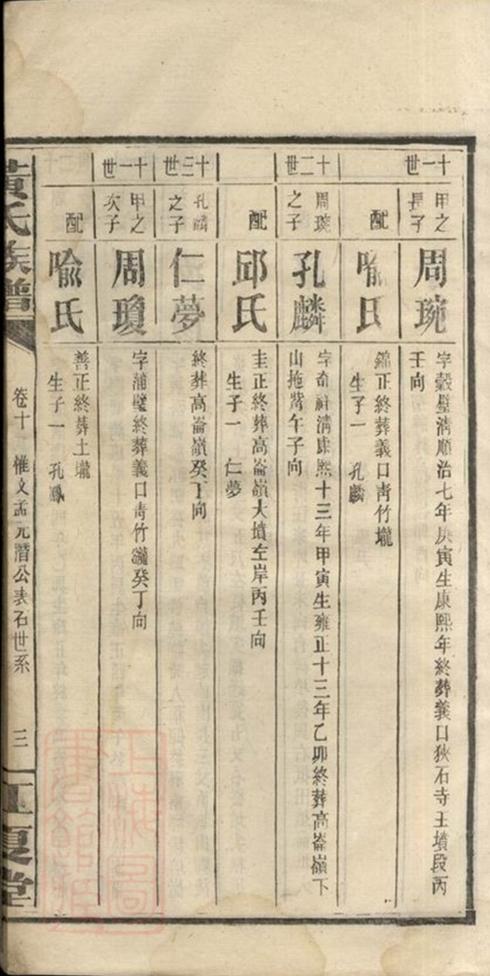 十一世
甲之長子
周琬
字縠璧淸順治七年庚寅生康熙年終葬義口狹石寺王墳段丙
壬向
配
喻氏
錦正終葬義口靑竹壠
生子一 孔麟
十二世
周琬之子
孔麟
字奇社淸康熙十三年甲寅生雍正十三年乙卯終葬高崙嶺下
山拖背午子向
配
邱氏
圭正終葬高崙嶺大墳左岸丙壬向
生子一 仁夢
十三世
孔麟之子
仁夢
終葬高崙嶺癸丁向
十一世
甲之次子
周瓊
字蒲璧終葬義口靑竹壠癸丁向
配
喻氏
善正終葬土壠
生子一 孔鳳
黃氏族譜
卷十 惟文孟元潛公表石世系
三
江夏堂